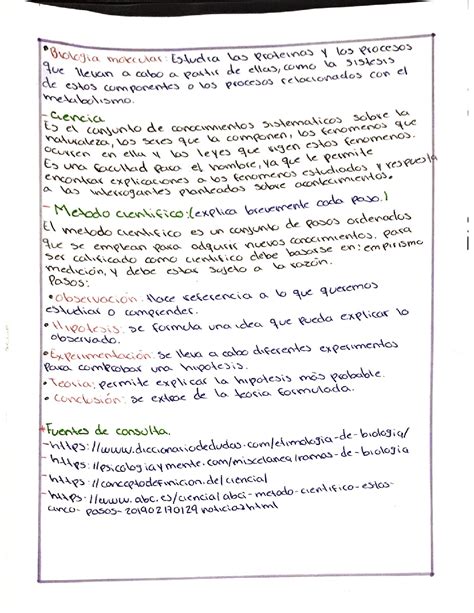 • Biología molecular: Estudia las proteinas y los procesos
que llevan a cabo a partir de ellas, como la sistesis
de estos componentes o los procesos relacionados con el
metabolismo.
- Ciencia
Es el conjunto de conocimientos sistematicos sobre la
naturaleza, los seres que la componen, los fenomenos que
ocurren en ella y las leyes que rigen estos fenomenos.
Es una facultad para el hombre, ya que le permite
encontrar explicaciones a los fenomenos estudiados y respuesta
a las interrogantes planteadas sobre acontecimientos.
- Metodo cientifico: (explica brevemente cada paso.)
El metodo cientifico es un conjunto de pasos ordenados
que se emplean para adquirir nuevos conocimientos, para
ser calificado como cientifico debe basarse en: empirismo
medición, y debe estar sujeto a la razón.
Pasos:
• Observación: Hace referencia a lo que queremos
estudiar o comprender.
• Hipotesis: se formula una idea que pueda explicar lo
observado.
• Experimentación: se lleva a cabo diferentes experimentos
para comprobar una hipotesis.
• Teoria: permite explicar la hipotesis más probable.
• Conclusión: se extrae de la teoria formulada.
Fuentes de consulta.
- https://www.diccionariodedudas.com/etimologia-de-biologia/
- https://psicologiaymente.com/miscelanea/ramas-de-biologia
- https://conceptodefinicion.de/ciencia/
- https://www.abc.es/ciencia/abci-metodo-cientifico-estos-
cinco-pasos-201902170129noticia.html